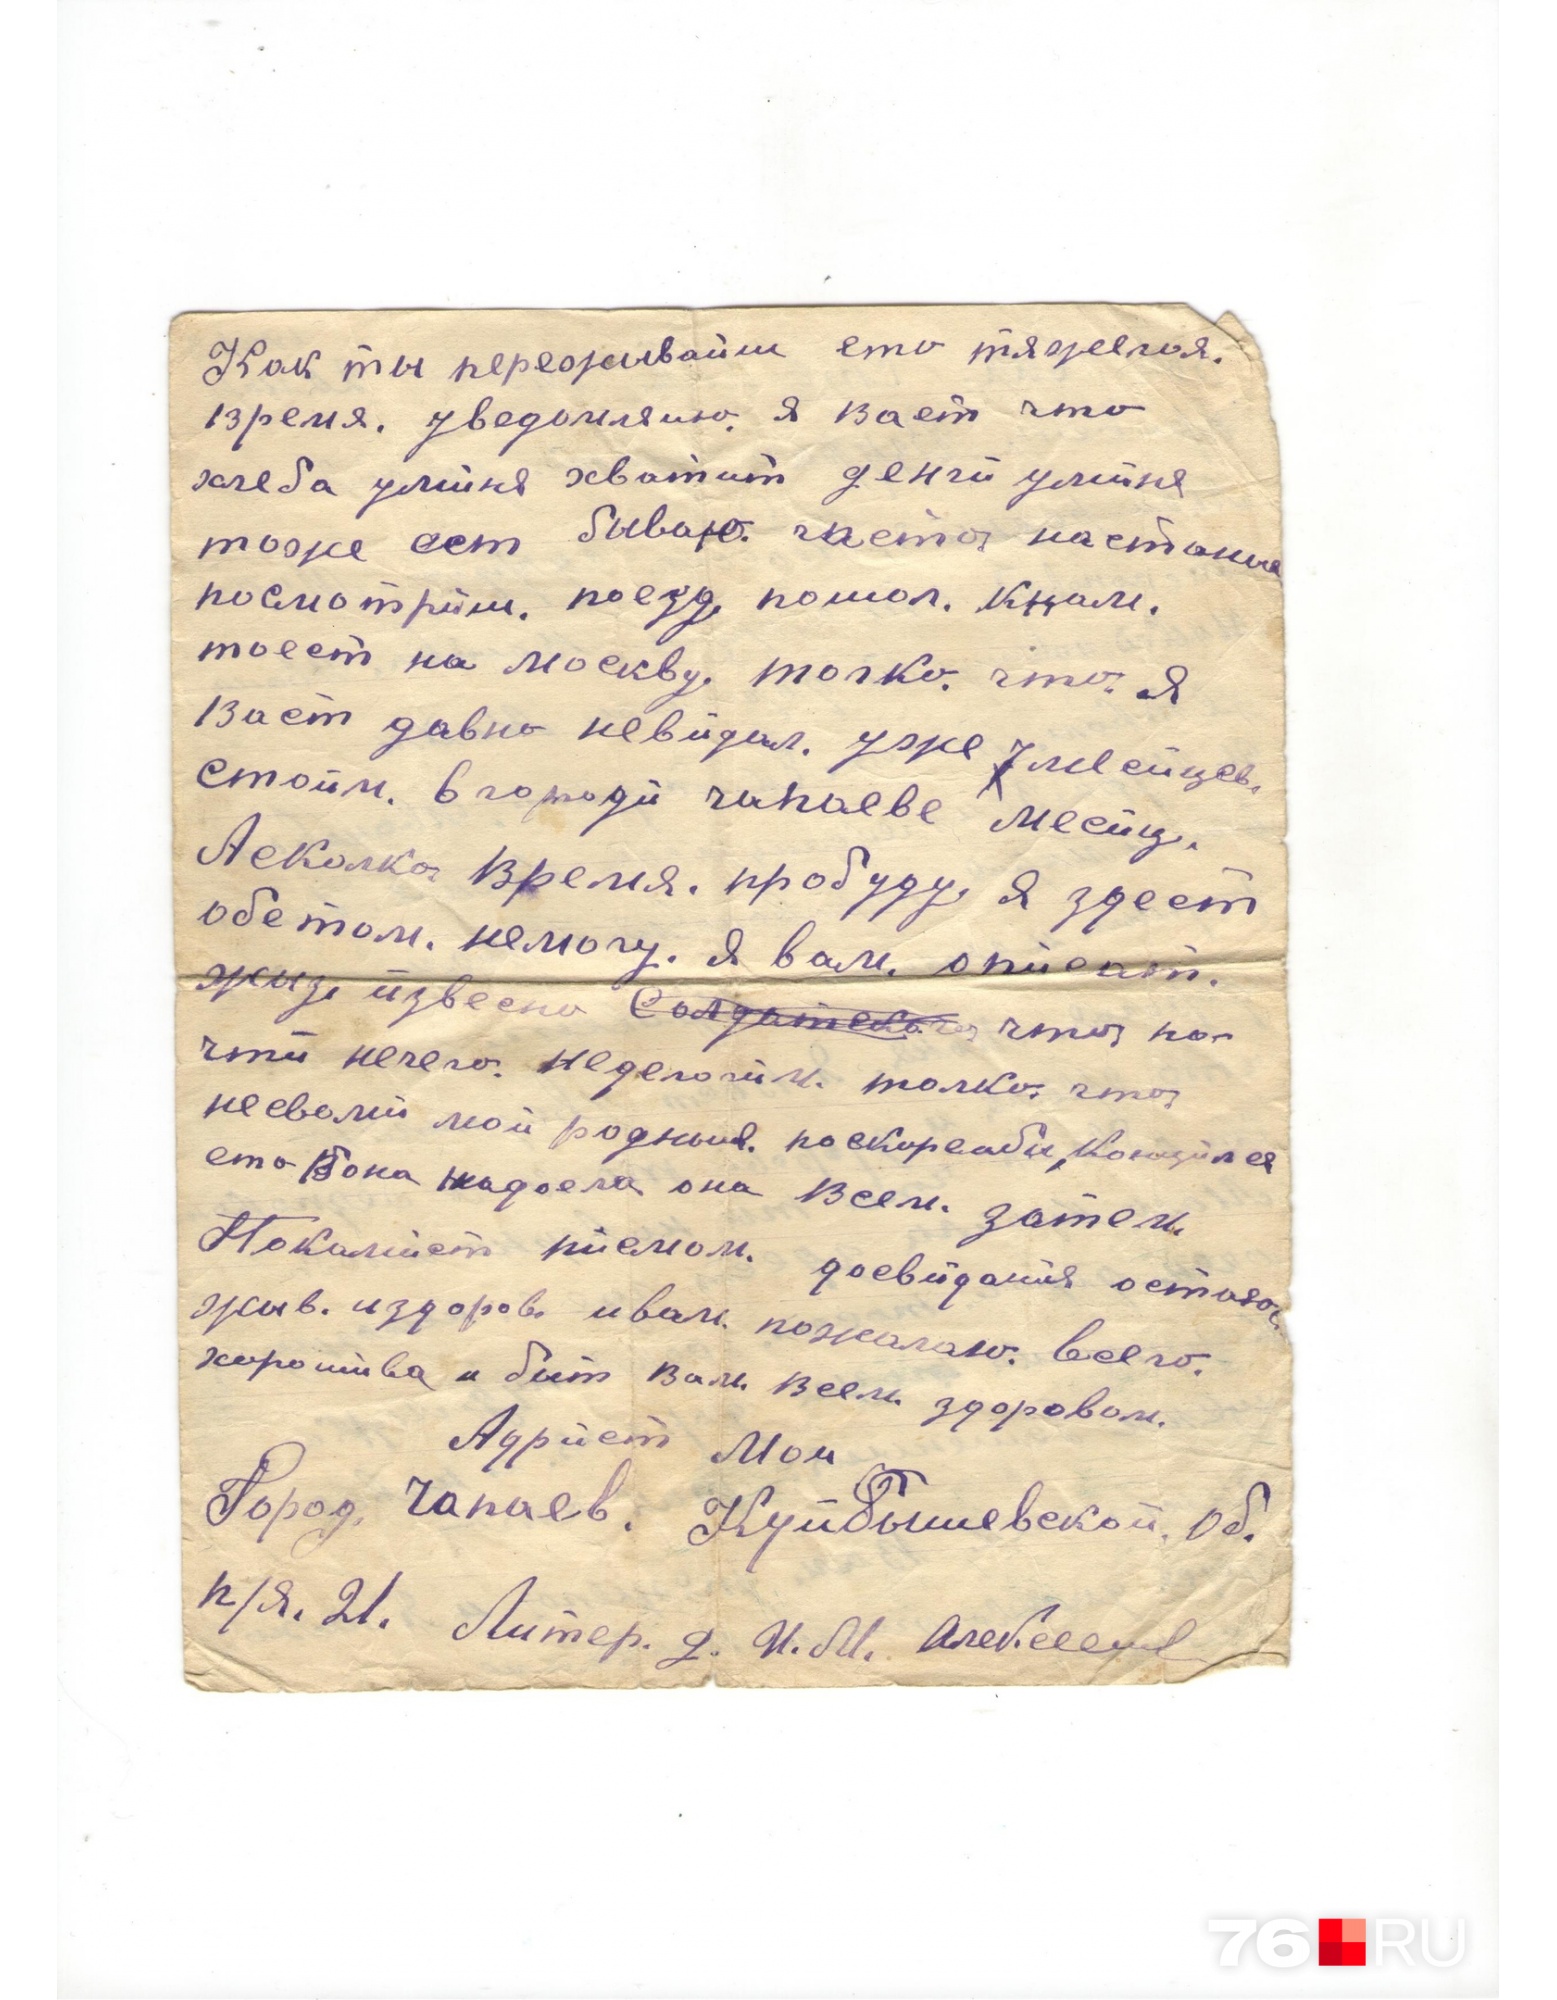 Как ты пережывайш ето тяжелоя.
время. уведомляю. я васт что
хлеба умйня хватит денги умйня
тоже ест бываю. часто настаные
посмотриш. поезд пошол. кнам.
тоест на москву. толко. что. я
васт давно невидал. уже 7 месйцев.
стойм. в городи чапаеве месйц.
Асколко время. пробуду. я здест
обетом. немогу. я вам. описат.
жыз, известно Солдатско что по-
чти нечего. неделоим. толко. что
несвоми мои родныя. поскорбаби, кончился
ето она надоела она всем. затем.
Покамист писмом. досвидания остаюс
жыв. издоров. ивам. пожалаю. всего.
хорошива и быт вам всем здоровом.
Адрист мои
Город, Чапаев. Куйбышевской. об.
п/я. 21. Литер. д. И. М. Алексеев
76 RU